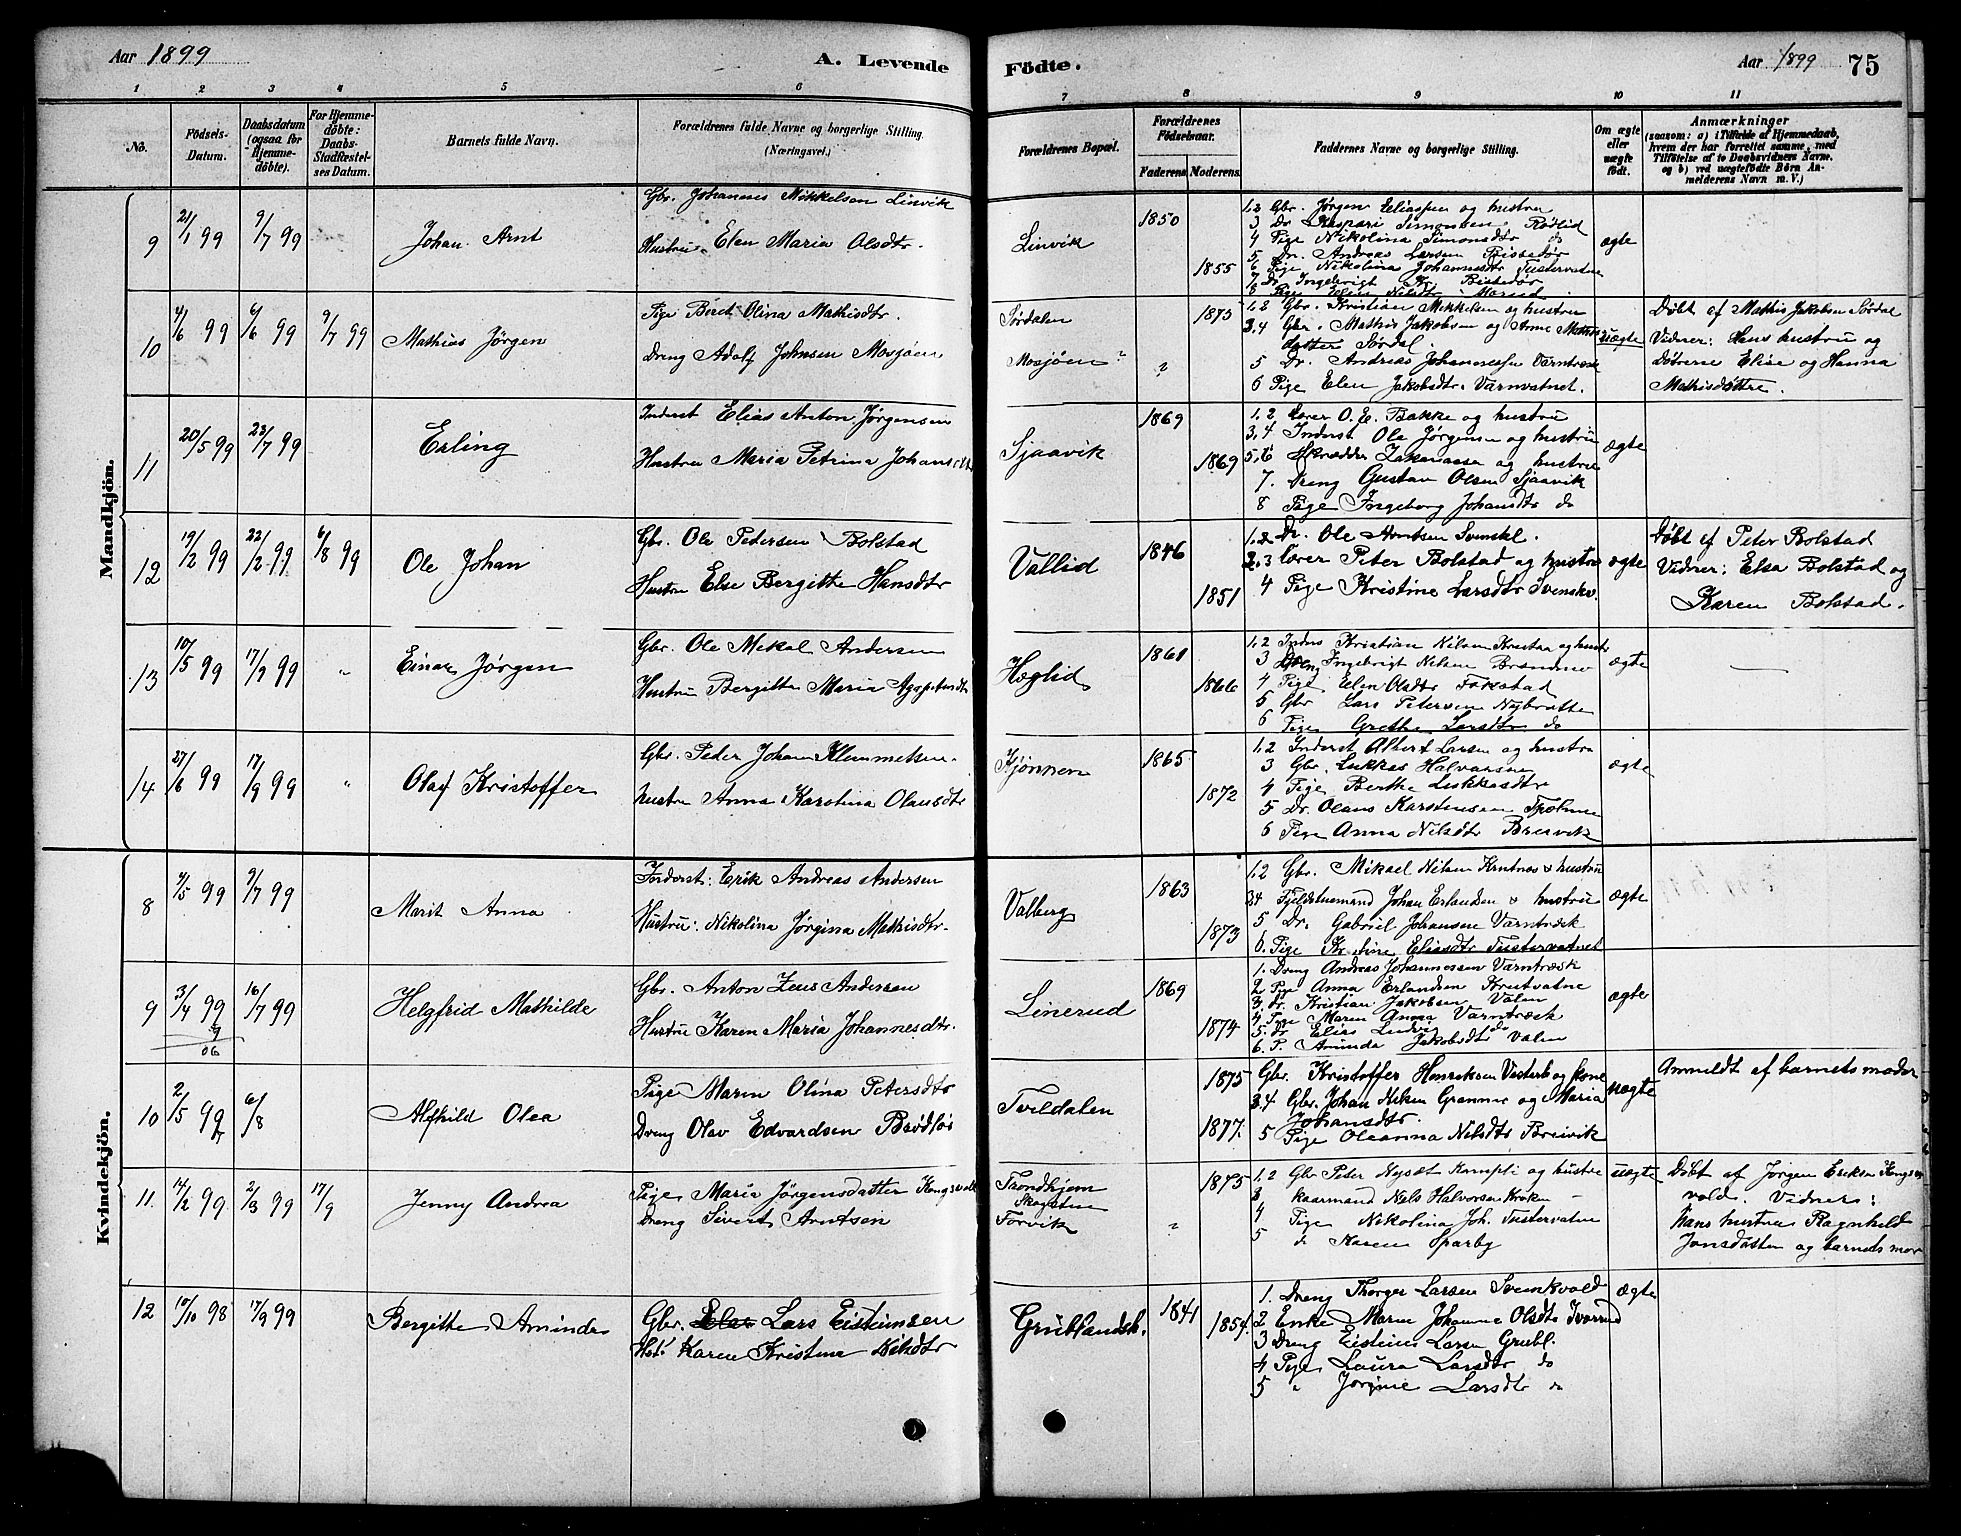 Aar 1899
A. Levende
Födte.
Aar 1899 75
1 2 3 4 5 6 7 8 9 10 11
No.
Födsels-Datum.
Daabsdatum (ogsaa for Hjemme-döbte).
For Hjemme-döbte: Daabs-Stadfæstel-ses Datum.
Barnets fulde Navn.
Forældrenes fulde Navne og borgerlige Stilling.
(Næringsvei.)
Forældrenes Bopæl.
Forældrenes Födselsaar.
Faderens. Moderens.
Faddernes Navne og borgerlige Stilling.
Om ægte eller uægte födt.
Anmærkninger
(saasom: a) i Tilfælde af Hjemmedaab, hvem der har forrettet samme, med Tilföielse af to Daabsvidners Navne. og b) ved uægtefödte Börn An-melderens Navn m. V.)
Mandkjön.
9 21/1 99 9/7 99 Johan Arnt
Gbr. Johannes Mikkelsen Linvik
Hustru Elen Maria Olsdtr.
Linvik 1850 1855
1.2 Gbr. Jørgen Eliassen og hustru
3 Dr. Kaspari Simonsen Rølid
4 Pige Nikolina Simonsdtr do
5 Dr. Andreas Larsen
6 Pige Nikolina Johannesdtr Tustervatne
7 Dr Ingebrigt
8 Pige Elen Nilsdtr
ægte
10 4/6 99 6/6 99 9/7 99 Mathias Jørgen
Pige Berit Olina Mathisdtr.
Dreng Adolf Johnsen Mosjøen
Sørdalen
Mosjøen ?
1875 ?
1.2 Gbr. Kristian Mikkelsen og hustru
3.4 Gbr. Mathis Jakobsen og Anne Mathis
datter Sørdal.
5 Dr. Andreas Johannessen Varntræsk
6 Pige Elen Jakobsdtr. Varnvatnet.
uægte
Døbt af Mathis Jakobsen Sørdal
Vidner: Hans hustru og
døtrene Elise og Hanna
Mathisdøttre.
11 20/5 99 23/7 99 Erling
Inderst Elias Anton Jørgensen
Hustru Maria Petrina Johansdtr
Sjaavik 1869 1869
1.2 Lærer O. E. Bakke og hustru
3.4 Inderst Ole Jørgensen og hustru
5.6 Skrædder Zakariasen og hustru
7. Dreng Gustav Olsen Sjaavik
8 Pige Ingeborg Johansdtr do
ægte
12 19/2 99 22/2 99 6/8 99 Ole Johan
Gbr. Ole Petersen Bolstad
Hustru Else Bergitte Hansdtr
Vallid 1846 1851
1. Dr. Ole Arntsen Svenskl.
2.3 Lærer Peter Bolstad og hustru
4 Pige Kristine Larsdtr Svenskv.
ægte
Døbt af Peter Bolstad
Vidner: Elsa Bolstad og
Karen Bolstad.
13 10/5 99 17/9 99 " Einar Jørgen
Gbr. Ole Mikal Andersen
Hustru Bergitte Maria Agapetusdtr
Høglid 1861 1866
1.2 Inders Kristian Nilsen Krutna og hustr
3 Dreng Ingebrigt Nilsen Brændmo
4 Pige Elen Olsdtr Fokstad
5 Gbr Lars Petersen Nybratte
6 Pige Grethe Larsdtr do
ægte —
14 27/6 99 17/9 99 " Olaf Kristoffer
Gbr. Peder Johan Klemmetsen.
hustru Anna Karstina Olausdtr
Kjønnen 1865 1872
1.2 Inderst Albert Larsen og hustru
3 Gbr. Lukkas Halvarsen
4 Pige Berthe Lukkasdtr
5 Dr. Olaus Karstensen
6 Pige Anna Nilsdtr Breivik
ægte
Kvindekjön.
8 4/5 99 9/7 99 Marit Anna
Inderst: Erik Andreas Andersen
Hustru: Nikolina Jørgina Mathisdtr.
Valberg 1863 1873
1.2 Gbr. Mikael Nilsen Krutnes & hustru
34 Fjeldstuemand Johan Erlandsen & hustru
5 Dr. Gabriel Johansen Varntræsk
6. Pige Kristine Eliasdtr Tustervatnet
ægte
9 3/4 99 16/7 99 Helgfrid Mathilde
06
Gbr. Anton Zeus Andersen
Hustru Karen Maria Johannesdtr.
Linerud 1869 1874
1. Dreng Andreas Johannessen Varntræsk
2 Pige Anna Erlandsen Krutvatne
3. dr. Kristian Jakobsen Valen
4 Pige Maren Anna Varntræsk
5. dr Elias Ludvig do
6. P. Aminda Jakobsdtr Valen
ægte
10 2/5 99 6/8 Alfhild Olea
Pige Maren Olina Petersdtr
Dreng Olav Edvardsen
Tverdalen 1875 1877.
Gbr. Kristoffer Henriksen og kone
3.4 Gbr. Johan Nilsen og Maria
Johansdtr.
5 Pige Oleanna Nilsdtr Breivik
uægte
Anmeldt af barnets moder
11. 14/2 99 2/3 99 17/9 Jenny Andrea
Pige Maria Jørgensdatter Kongsvold
Dreng Sivert Arntsen
Trondhjem
Forvik
1875 ?
1.2 Gbr Peter Nysæt og hustru
3 kaarmand Nels Halvorsen Kroken
4 Pige Nikolina Joh. Tustervatne
5 do Karen Sparby
uægte
Døbt af Jørgen Eriksen Kongs
vold. Vidner:
Hans hustru Ragnhild
Jonsdatter og barnets mor
12 10/10 98 17/9 99 Bergitte Aminda
Gbr. Lars Eisteinsen
Hst. Karen Kristina Nilsdtr
Grublandsk. 1841 1854.
1. Dreng Thorger Larsen Svenskvold
2 Enke Maren Johanne Olsdtr
3 Dreng Eistein Larsen Grubl.
4 Pige Laura Larsdtr do
5 " Jørgine Larsdtr do
ægte